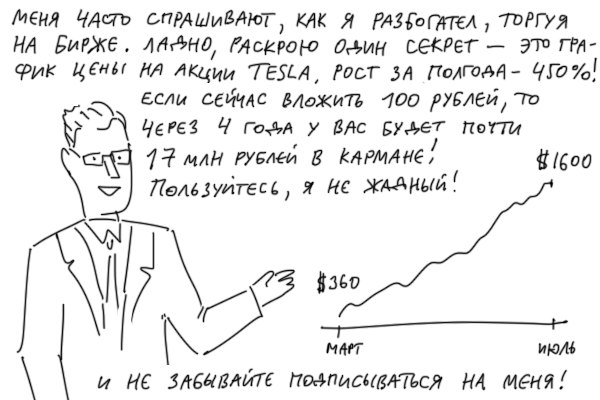 МЕНЯ ЧАСТО СПРАШИВАЮТ, КАК Я РАЗБОГАТЕЛ, ТОРГУЯ
НА БИРЖЕ. ЛАДНО, РАСКРОЮ ОДИН СЕКРЕТ — ЭТО ГРА-
ФИК ЦЕНЫ НА АКЦИИ TESLA. РОСТ ЗА ПОЛГОДА - 450%!
ЕСЛИ СЕЙЧАС ВЛОЖИТЬ 100 РУБЛЕЙ, ТО
ЧЕРЕЗ 4 ГОДА У ВАС БУДЕТ ПОЧТИ
17 МЛН РУБЛЕЙ В КАРМАНЕ!
ПОЛЬЗУЙТЕСЬ, Я НЕ ЖАДНЫЙ!
$1600
$360
МАРТ
ИЮЛЬ
И НЕ ЗАБЫВАЙТЕ ПОДПИСЫВАТЬСЯ НА МЕНЯ!